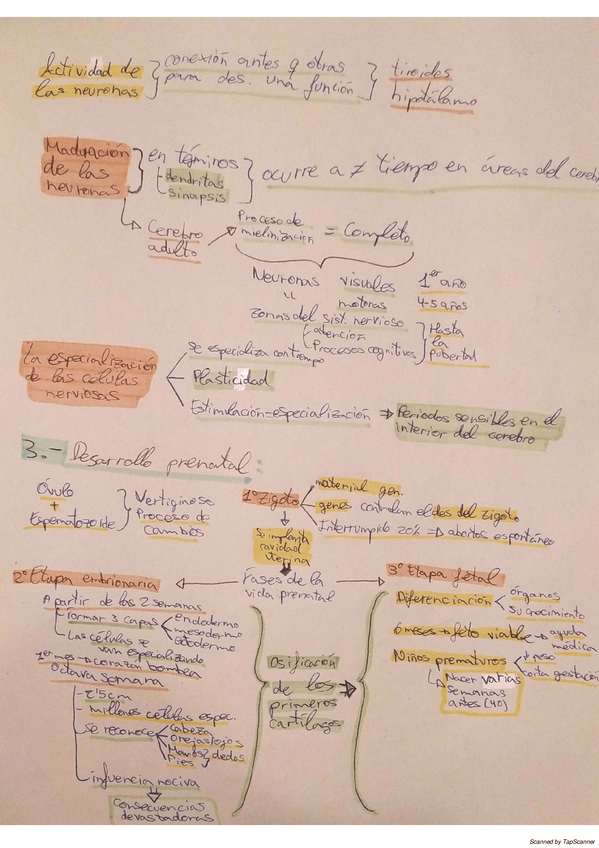 Actividad de las neuronas
conexión antes q otras
para des. una función
tiroides
hipotálamo
Maduración de las neuronas
en términos
dendritas
sinapsis
ocurre a ≠ tiempo en áreas del cereb
Cerebro adulto
Proceso de mielinización = Completo
Neuronas visuales 1er año
" motoras 4-5 años
zonas del sist. nervioso
atención
Procesos cognitivos
Hasta la pubertad
La especialización de las células nerviosas
se especializa con tiempo
Plasticidad
Estimulación=especialización ⇒ Periodos sensibles en el interior del cerebro
3.- Desarrollo prenatal:
Óvulo
+
Espematozoide
Vertiginoso
Proceso de
cambios
1º Zigoto
material gen.
genes controlan el des del zigoto
Interrumpido 20% ⇒ abortos espontáneo
Se implanta
cavidad
uterina
Fases de la
vida prenatal
2º Etapa embrionaria
A partir de las 2 semanas
formar 3 capas
endodermo
mesodermo
ectodermo
Las células se
van especializando
1er mes → corazón bombea
Octava semana
- 2'5cm
- millones células espec.
- se reconoce
cabeza
orejas/ojos
Manos
Pies
dedos
- influencia nociva
Consecuencias
devastadoras
Osificación
de los
primeros
cartílagos
3º Etapa fetal
Diferenciación
órganos
su crecimiento
6 meses → feto viable → ayuda
médica
Niños prematuros
↓ peso
corta gestación
Nacer varias
semanas
antes (40)
Scanned by TapScanner